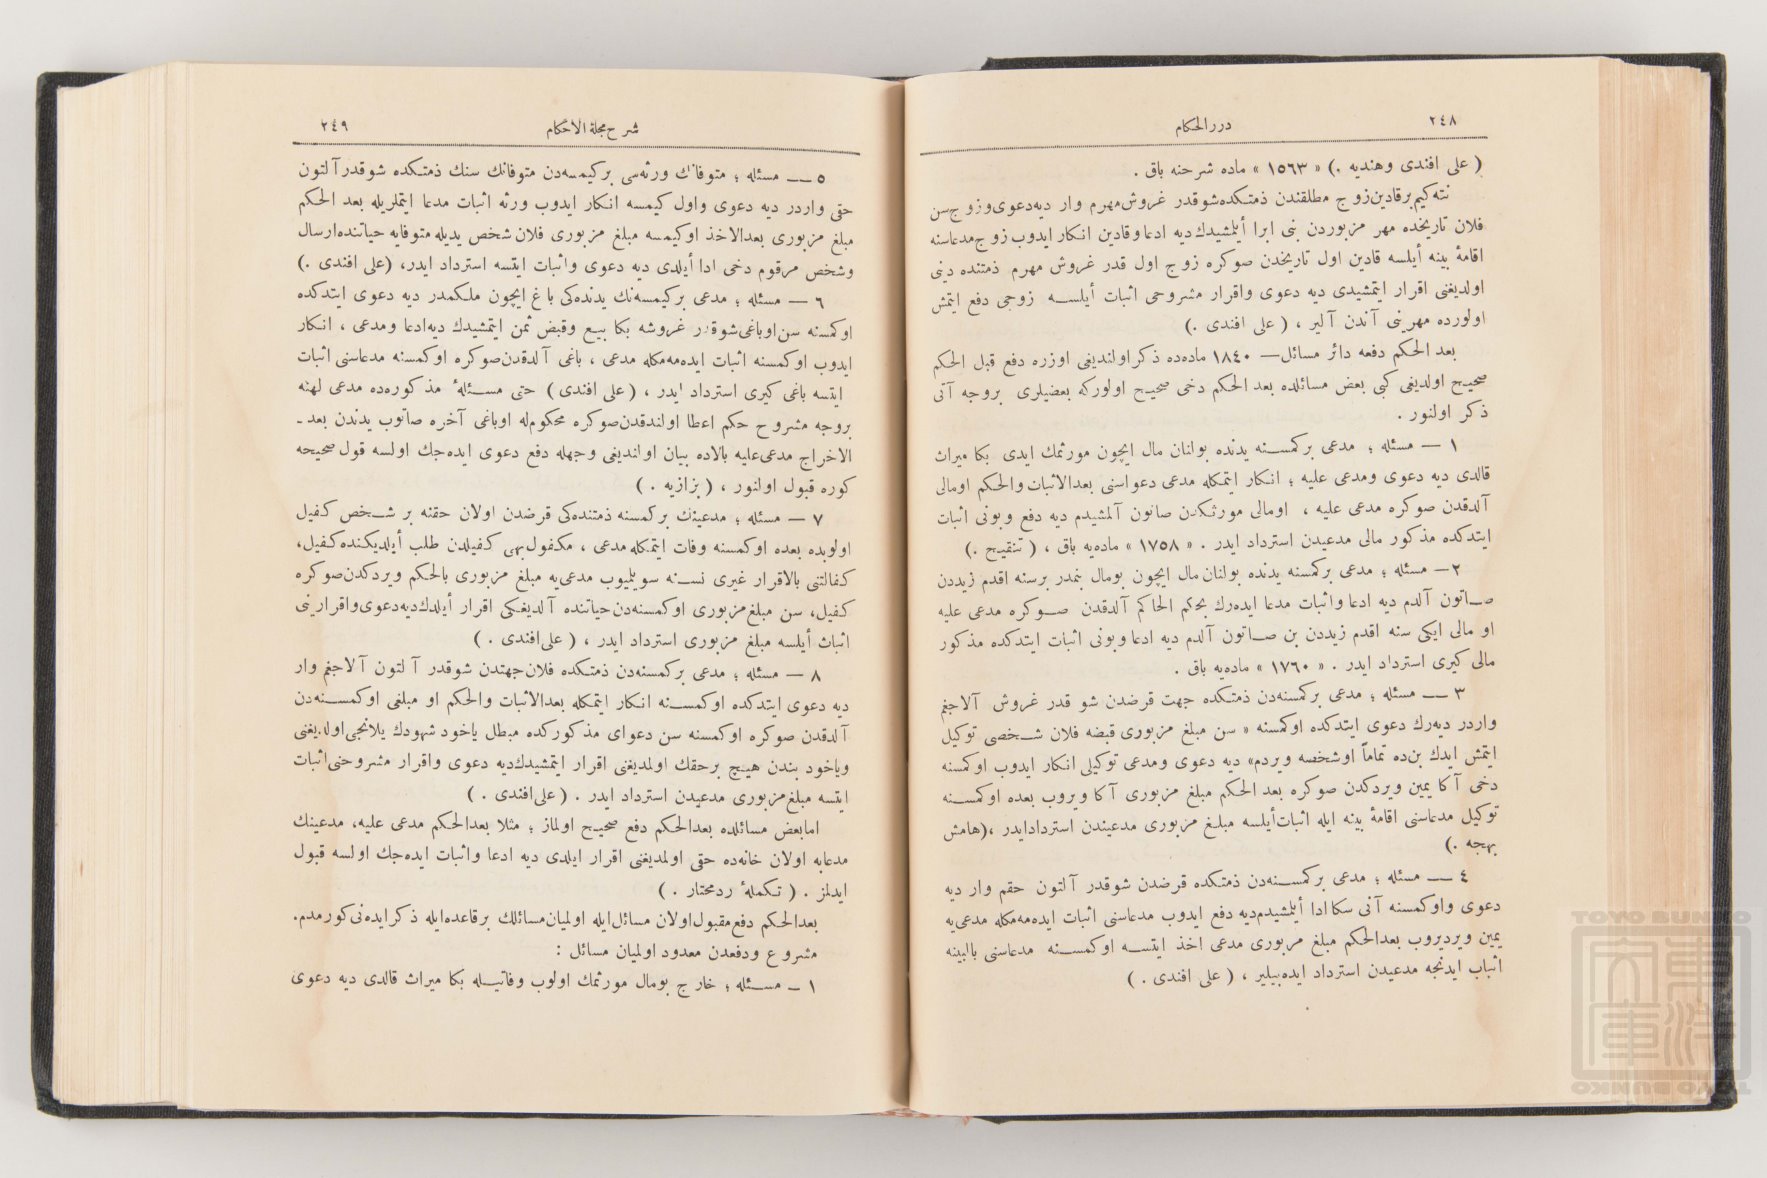 ٢٤٨
دررالحكام
( على افندى وهنديه .) « ١٥٦٣ » ماده شرحنه باق .
نته‌كيم برقادين زوج مطلقندن ذمتكده شوقدر غروش مهرم وار ديه دعوى وزوج سن
فلان تاريخده مهر مزبوردن بنى ابرا أيلمشيدك ديه ادعا وقادين انكار ايدوب زوج مدعاسنه
اقامۀ بينه أيلسه قادين اول تاريخدن صوكره زوج اول قدر غروش مهرم ذمتنده دينى
اولديغنى اقرار ايتمشيدى ديه دعوى واقرار مشروحى اثبات أيلسه زوجى دفع ايتمش
اولورده مهرينى آندن آلير ، ( على افندى .)
بعد الحكم دفعه دائر مسائل — ١٨٤٠ ماده‌ده ذكر اولنديغى اوزره دفع قبل الحكم
صحيح اولديغى كبى بعض مسائلده بعد الحكم دخى صحيح اولوركه بعضيلرى بروجه آتى
ذكر اولنور .
١ — مسئله ؛ مدعى بركمسنه يدنده بولنان مال ايچون مورثمك ايدى بكا ميراث
قالدى ديه دعوى ومدعى عليه ؛ انكار ايتمكله مدعى دعواسنى بعدالاثبات والحكم اومالى
آلدقدن صوكره مدعى عليه ، اومالى مورثكدن صاتون آلمشيدم ديه دفع وبونى اثبات
ايتدكده مذكور مالى مدعيدن استرداد ايدر . « ١٧٥٨ » ماده‌يه باق ، ( تنقيح .)
٢— مسئله ؛ مدعى بركمسنه يدنده بولنان مال ايچون بومال بنمدر برسنه اقدم زيددن
صاتون آلدم ديه ادعا واثبات مدعا ايده‌رك بحكم الحاكم آلدقدن صوكره مدعى عليه
او مالى ايكى سنه اقدم زيددن بن صاتون آلدم ديه ادعا وبونى اثبات ايتدكده مذكور
مالى كيرى استرداد ايدر . « ١٧٦٠ » ماده‌يه باق .
٣ — مسئله ؛ مدعى بركمسنه‌دن ذمتكده جهت قرضدن شو قدر غروش آلاجغم
واردر ديه‌رك دعوى ايتدكده اوكمسنه « سن مبلغ مزبورى قبضه فلان شخصى توكيل
ايتمش ايدك بن‌ده تماماً اوشخصه ويردم» ديه دعوى ومدعى توكيلى انكار ايدوب اوكمسنه
دخى آكا يمين ويردكدن صوكره بعد الحكم مبلغ مزبورى آكا ويروب بعده اوكمسنه
توكيل مدعاسنى اقامۀ بينه ايله اثبات أيلسه مبلغ مزبورى مدعيندن استرداد ايدر ،(هامش
بهجه .)
٤ — مسئله ؛ مدعى بركمسنه‌دن ذمتكده قرضدن شوقدر آلتون حقم وار ديه
دعوى واوكمسنه آنى سكا ادا أيلمشيدم ديه دفع ايدوب مدعاسنى اثبات ايده‌مه‌مكله مدعى‌يه
يمين ويرديروب بعدالحكم مبلغ مزبورى مدعى اخذ ايتسه اوكمسنه مدعاسنى بالبينه
اثباب ايدنجه مدعيدن استرداد ايده‌بيلير ، ( على افندى . )
٢٤٩
شرح مجلة الاحكام
٥ — مسئله ؛ متوفانك ورثه‌سى بركيمسه‌دن متوفانك سنك ذمتكده شوقدر آلتون
حقى واردر ديه دعوى واول كيمسه انكار ايدوب ورثه اثبات مدعا ايتملريله بعد الحكم
مبلغ مزبورى بعدالاخذ اوكيمسه مبلغ مزبورى فلان شخص يديله متوفايه حياتنده ارسال
وشخص مرقوم دخى ادا أيلدى ديه دعوى واثبات ايتسه استرداد ايدر، (على افندى .)
٦ — مسئله ؛ مدعى بركيمسه‌نك يدنده‌كى باغ ايچون ملكمدر ديه دعوى ايتدكده
اوكمسنه سن اوباغى شوقدر غروشه بكا بيع وقبض ثمن ايتمشيدك ديه ادعا ومدعى ، انكار
ايدوب اوكمسنه اثبات ايده‌مه‌مكله مدعى ، باغى آلدقدن صوكره اوكمسنه مدعاسنى اثبات
ايتسه باغى كيرى استرداد ايدر ، ( على افندى ) حتى مسئلۀ مذكوره‌ده مدعى لهنه
بروجه مشروح حكم اعطا اولندقدن صوكره محكوم‌له اوباغى آخره صاتوب يدندن بعد-
الاخراج مدعى‌عليه بالاده بيان اولنديغى وجهله دفع دعوى ايده‌جك اولسه قول صحيحه
كوره قبول اولنور ، ( بزازيه . )
٧ — مسئله ؛ مدعينك بركمسنه ذمتنده‌كى قرضدن اولان حقنه بر شخص كفيل
اولوبده بعده اوكمسنه وفات ايتمكله مدعى ، مكفول‌بهى كفيلدن طلب أيلديكنده كفيل،
كفالتنى بالاقرار غيرى نسنه سويليوب مدعى‌يه مبلغ مزبورى بالحكم ويردكدن صوكره
كفيل، سن مبلغ مزبورى اوكمسنه‌دن حياتنده آلديغكى اقرار أيلدك ديه دعوى واقرارينى
اثبات أيلسه مبلغ مزبورى استرداد ايدر ، ( على افندى . )
٨ — مسئله ؛ مدعى بركمسنه‌دن ذمتكده فلان جهتدن شوقدر آلتون آلاجغم وار
ديه دعوى ايتدكده اوكمسنه انكار ايتمكله بعدالاثبات والحكم او مبلغى اوكمسنه‌دن
آلدقدن صوكره اوكمسنه سن دعواى مذكوركده مبطل ياخود شهودك يلانجى اولديغنى
وياخود بندن هيچ برحقك اولمديغنى اقرار ايتمشيدك ديه دعوى واقرار مشروحنى اثبات
ايتسه مبلغ مزبورى مدعيدن استرداد ايدر . ( على افندى . )
اما بعض مسائلده بعدالحكم دفع صحيح اولماز ؛ مثلا بعدالحكم مدعى عليه، مدعينك
مدعابه اولان خانه‌ده حقى اولمديغنى اقرار ايلدى ديه ادعا واثبات ايده‌جك اولسه قبول
ايدلمز . ( تكملۀ ردمحتار . )
بعدالحكم دفع مقبول اولان مسائل ايله اولميان مسائلك برقاعده ايله ذكر ايده‌نى كورمدم.
مشروع ودفعدن معدود اولميان مسائل :
١ — مسئله ؛ خارج بومال مورثمك اولوب وفاتيله بكا ميراث قالدى ديه دعوى
TOYO BUNKO
東洋文庫
TOYO BUNKO